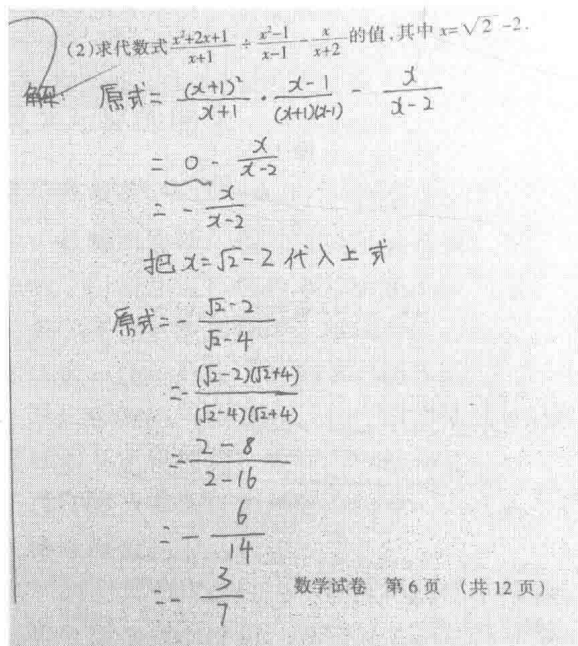 (2)求代数式(x²+2x+1)/(x+1) ÷ (x²-1)/(x-1) - x/(x+2)的值,其中 x=√2 -2.
解: 原式= (x+1)²/(x+1) · (x-1)/((x+1)(x-1)) - x/(x-2)
= 0 - x/(x-2)
= - x/(x-2)
把 x=√2-2 代入上式
原式=- (√2-2)/(√2-4)
=- ((√2-2)(√2+4))/((√2-4)(√2+4))
=- (2-8)/(2-16)
=- 6/14
=- 3/7
数学试卷 第 6 页 (共 12 页)